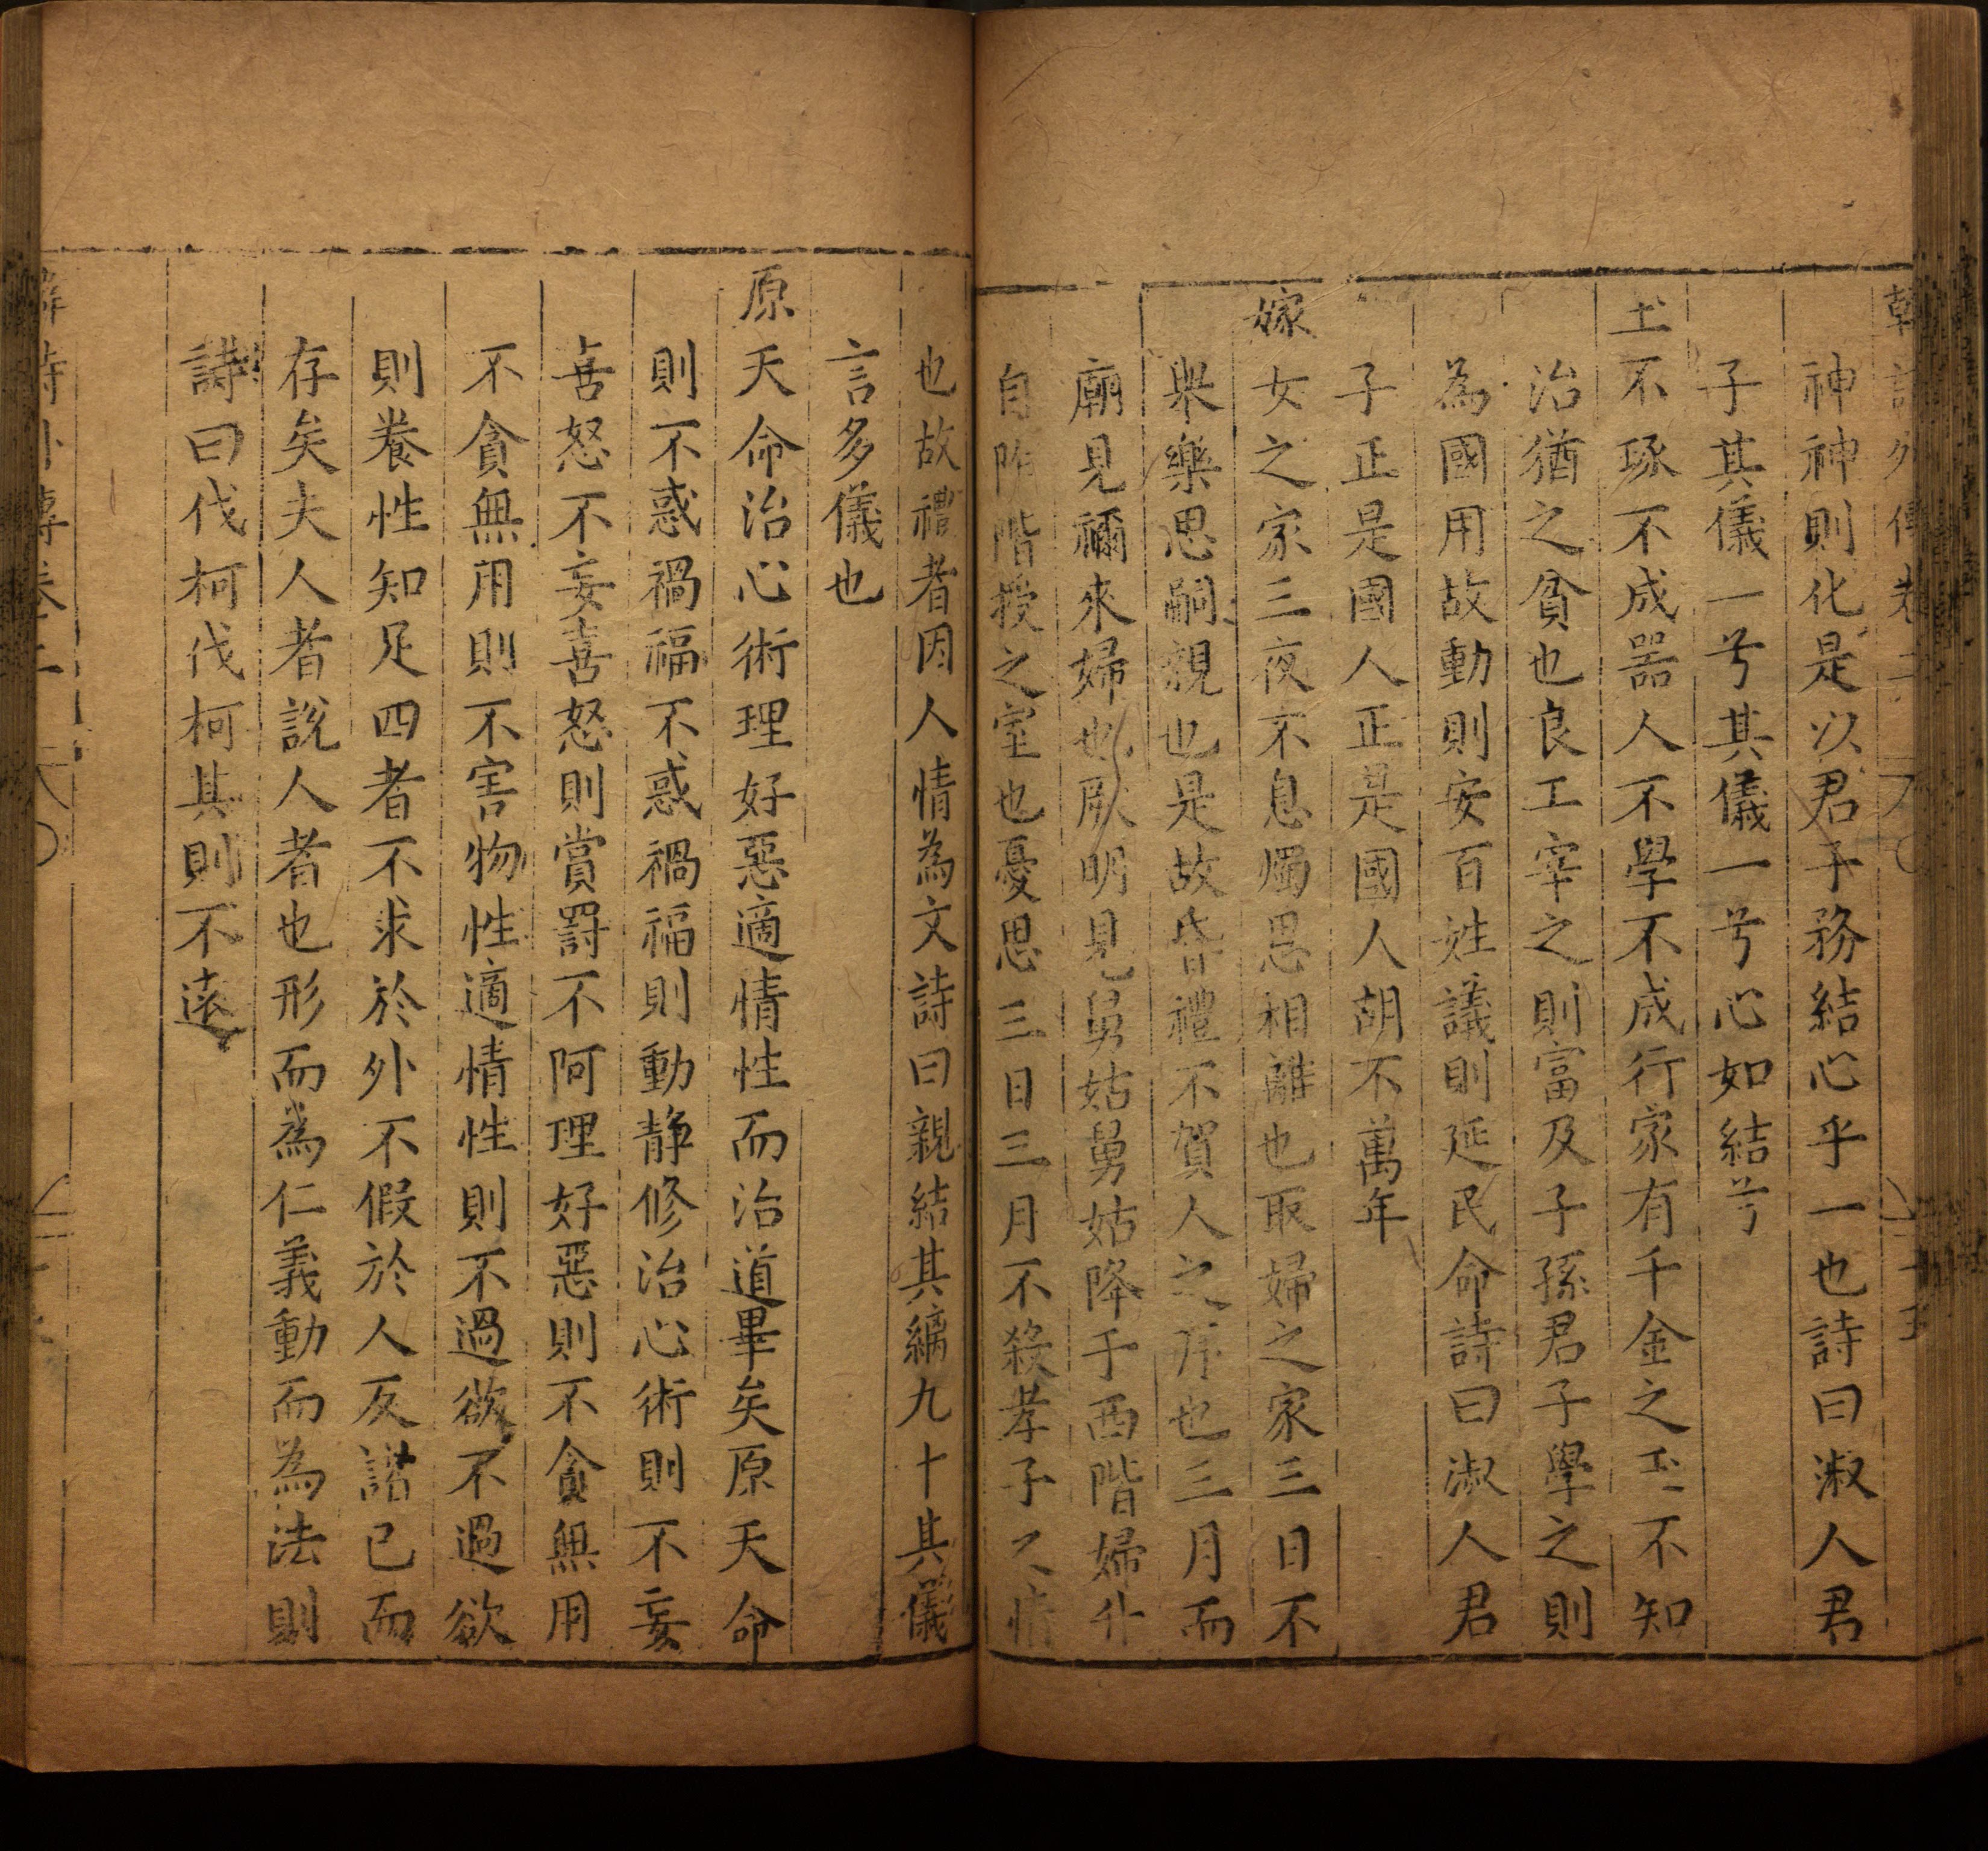 韓詩外傳卷二
神神則化是以君子務結心乎一也詩曰淑人君
子其儀一兮其儀一兮心如結兮
玉不琢不成器人不學不成行家有千金之玉不知
治猶之貧也良工宰之則富及子孫君子學之則
為國用故動則安百姓議則延民命詩曰淑人君
子正是國人正是國人胡不萬年
嫁女之家三夜不息燭思相離也取婦之家三日不
舉樂思嗣親也是故昏禮不賀人之序也三月而
廟見禰來婦也厥明見舅姑舅姑降于西階婦升
自阼階授之室也憂思三日三月不殺孝子之情
也故禮者因人情為文詩曰親結其縭九十其儀
言多儀也
原天命治心術理好惡適情性而治道畢矣原天命
則不惑禍福不惑禍福則動靜修治心術則不妄
喜怒不妄喜怒則賞罰不阿理好惡則不貪無用
不貪無用則不害物性適情性則不過欲不過欲
則養性知足四者不求於外不假於人反諸己而
存矣夫人者說人者也形而為仁義動而為法則
詩曰伐柯伐柯其則不遠